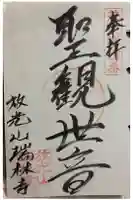 奉拝
聖観世音
放光山瑞林寺